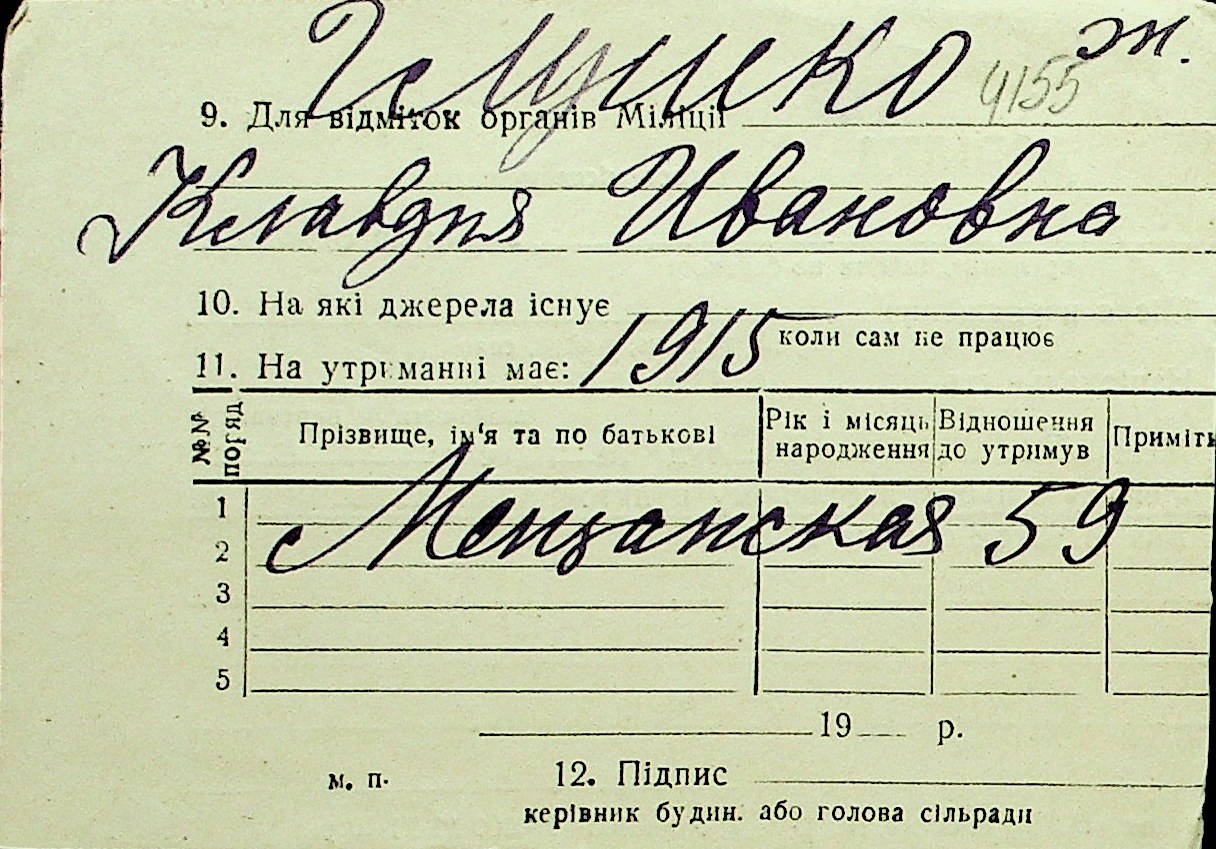 ж.
4155
9. Для відміток органів Міліції
Клавдия Ивановна
10. На які джерела існує
коли сам не працює
11. На утриманні має: 1915
№№ поряд
Прізвище, ім‘я та по батькові
Рік і місяць народження
Відношення до утримув
Примітк
1
Мещанская 59
2
3
4
5
19 р.
м. п.
12. Підпис
керівник будин. або голова сільради